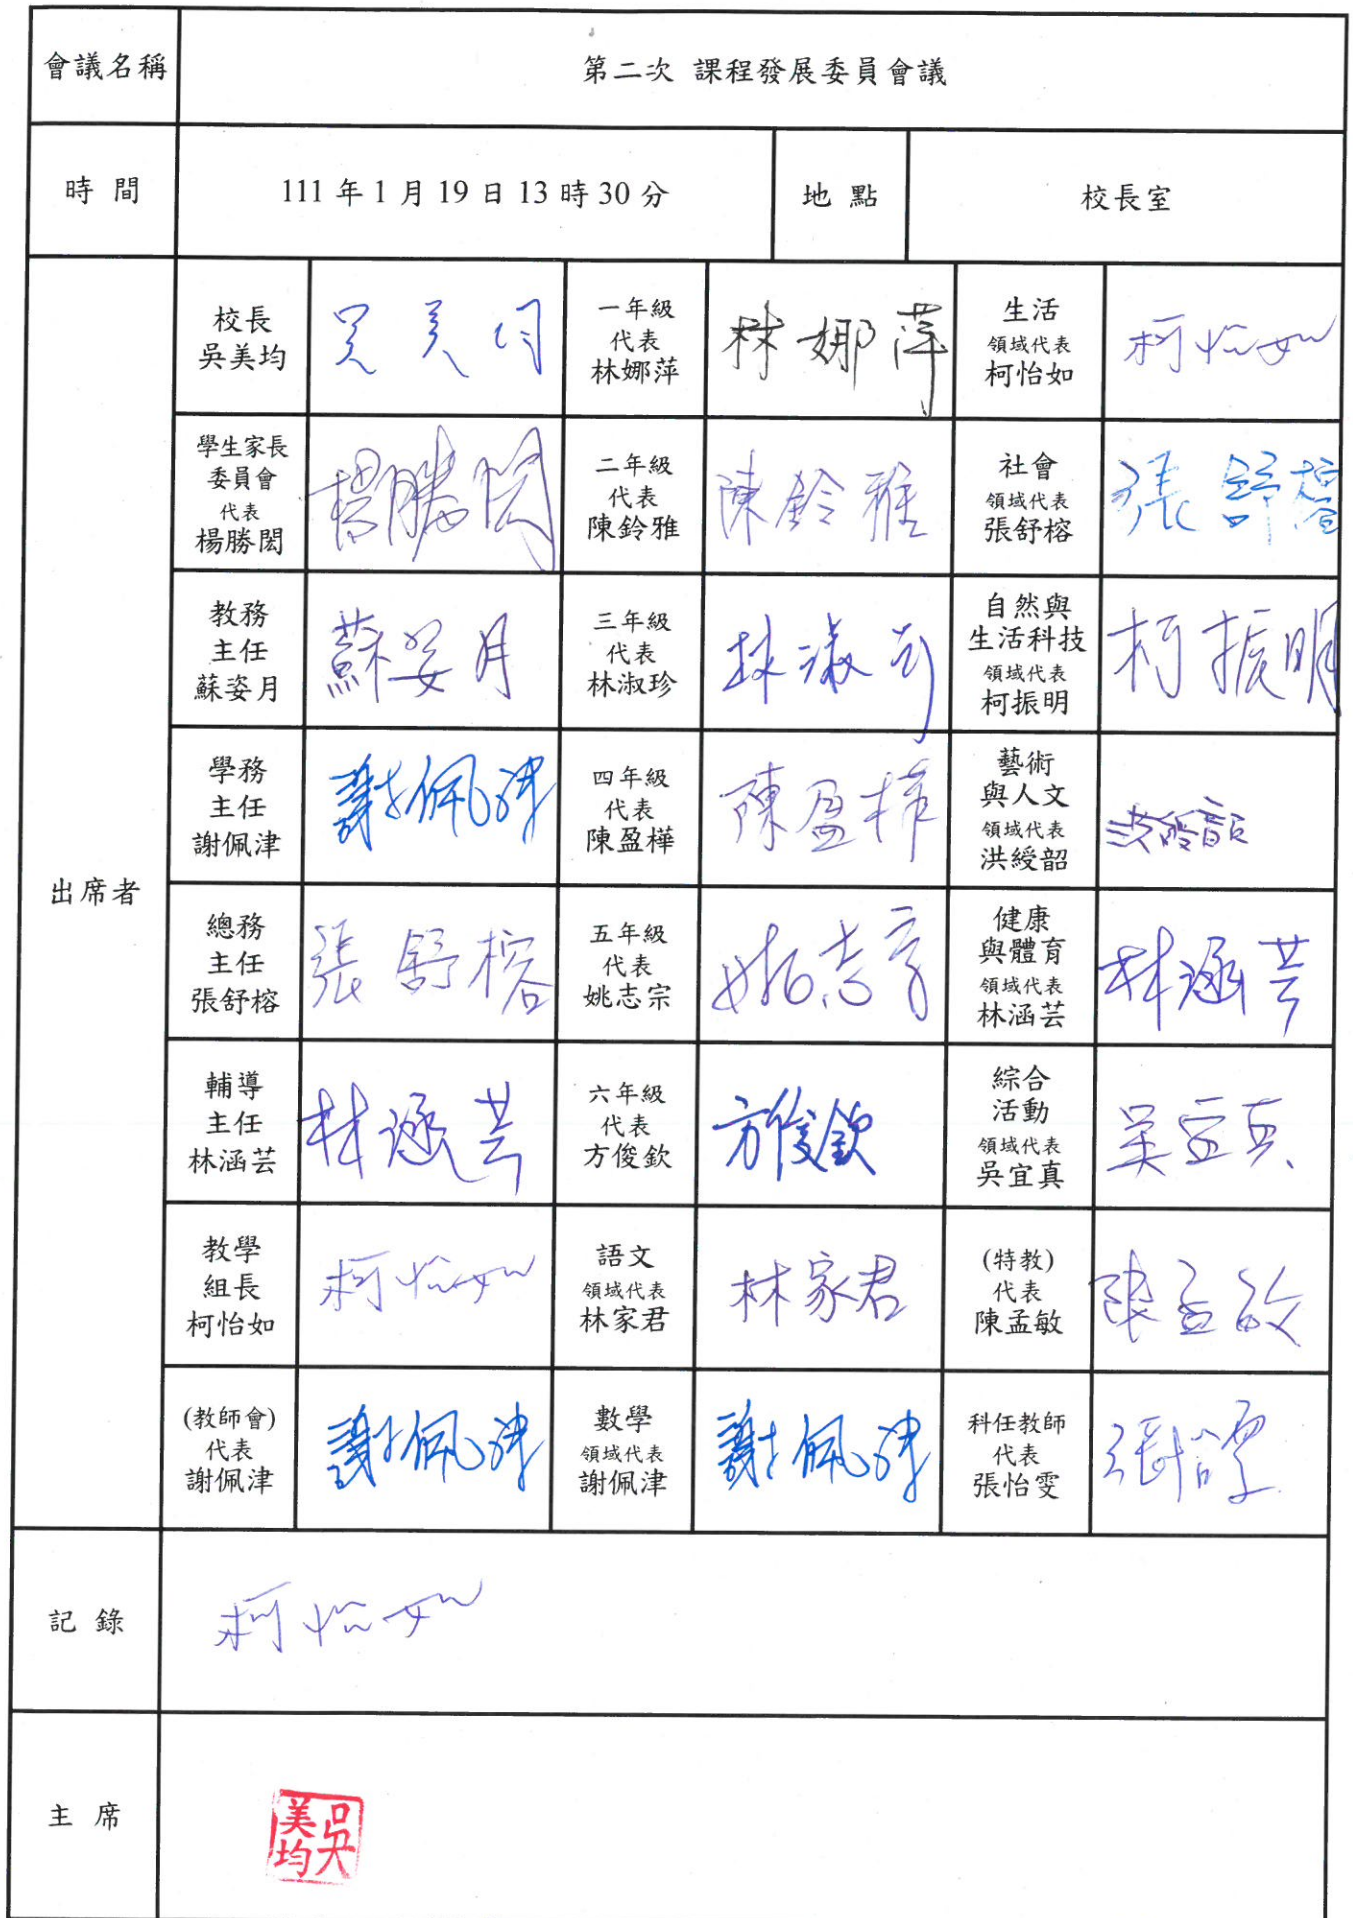 會議名稱
第二次 課程發展委員會議
時 間
111 年 1 月 19 日 13 時 30 分
地 點
校長室
出席者
校長
吳美均
吳美均
一年級
代表
林娜萍
林娜萍
生活
領域代表
柯怡如
柯怡如
學生家長
委員會
代表
楊勝閎
楊勝閎
二年級
代表
陳鈴雅
陳鈴雅
社會
領域代表
張舒榕
張舒榕
教務
主任
蘇姿月
蘇姿月
三年級
代表
林淑珍
林淑珍
自然與
生活科技
領域代表
柯振明
柯振明
學務
主任
謝佩津
謝佩津
四年級
代表
陳盈樺
陳盈樺
藝術
與人文
領域代表
洪綬韶
洪綬韶
總務
主任
張舒榕
張舒榕
五年級
代表
姚志宗
姚志宗
健康
與體育
領域代表
林涵芸
林涵芸
輔導
主任
林涵芸
林涵芸
六年級
代表
方俊欽
方俊欽
綜合
活動
領域代表
吳宜真
吳宜真
教學
組長
柯怡如
柯怡如
語文
領域代表
林家君
林家君
(特教)
代表
陳孟敏
陳孟敏
(教師會)
代表
謝佩津
謝佩津
數學
領域代表
謝佩津
謝佩津
科任教師
代表
張怡雯
張怡雯
記 錄
柯怡如
主 席
吳美均